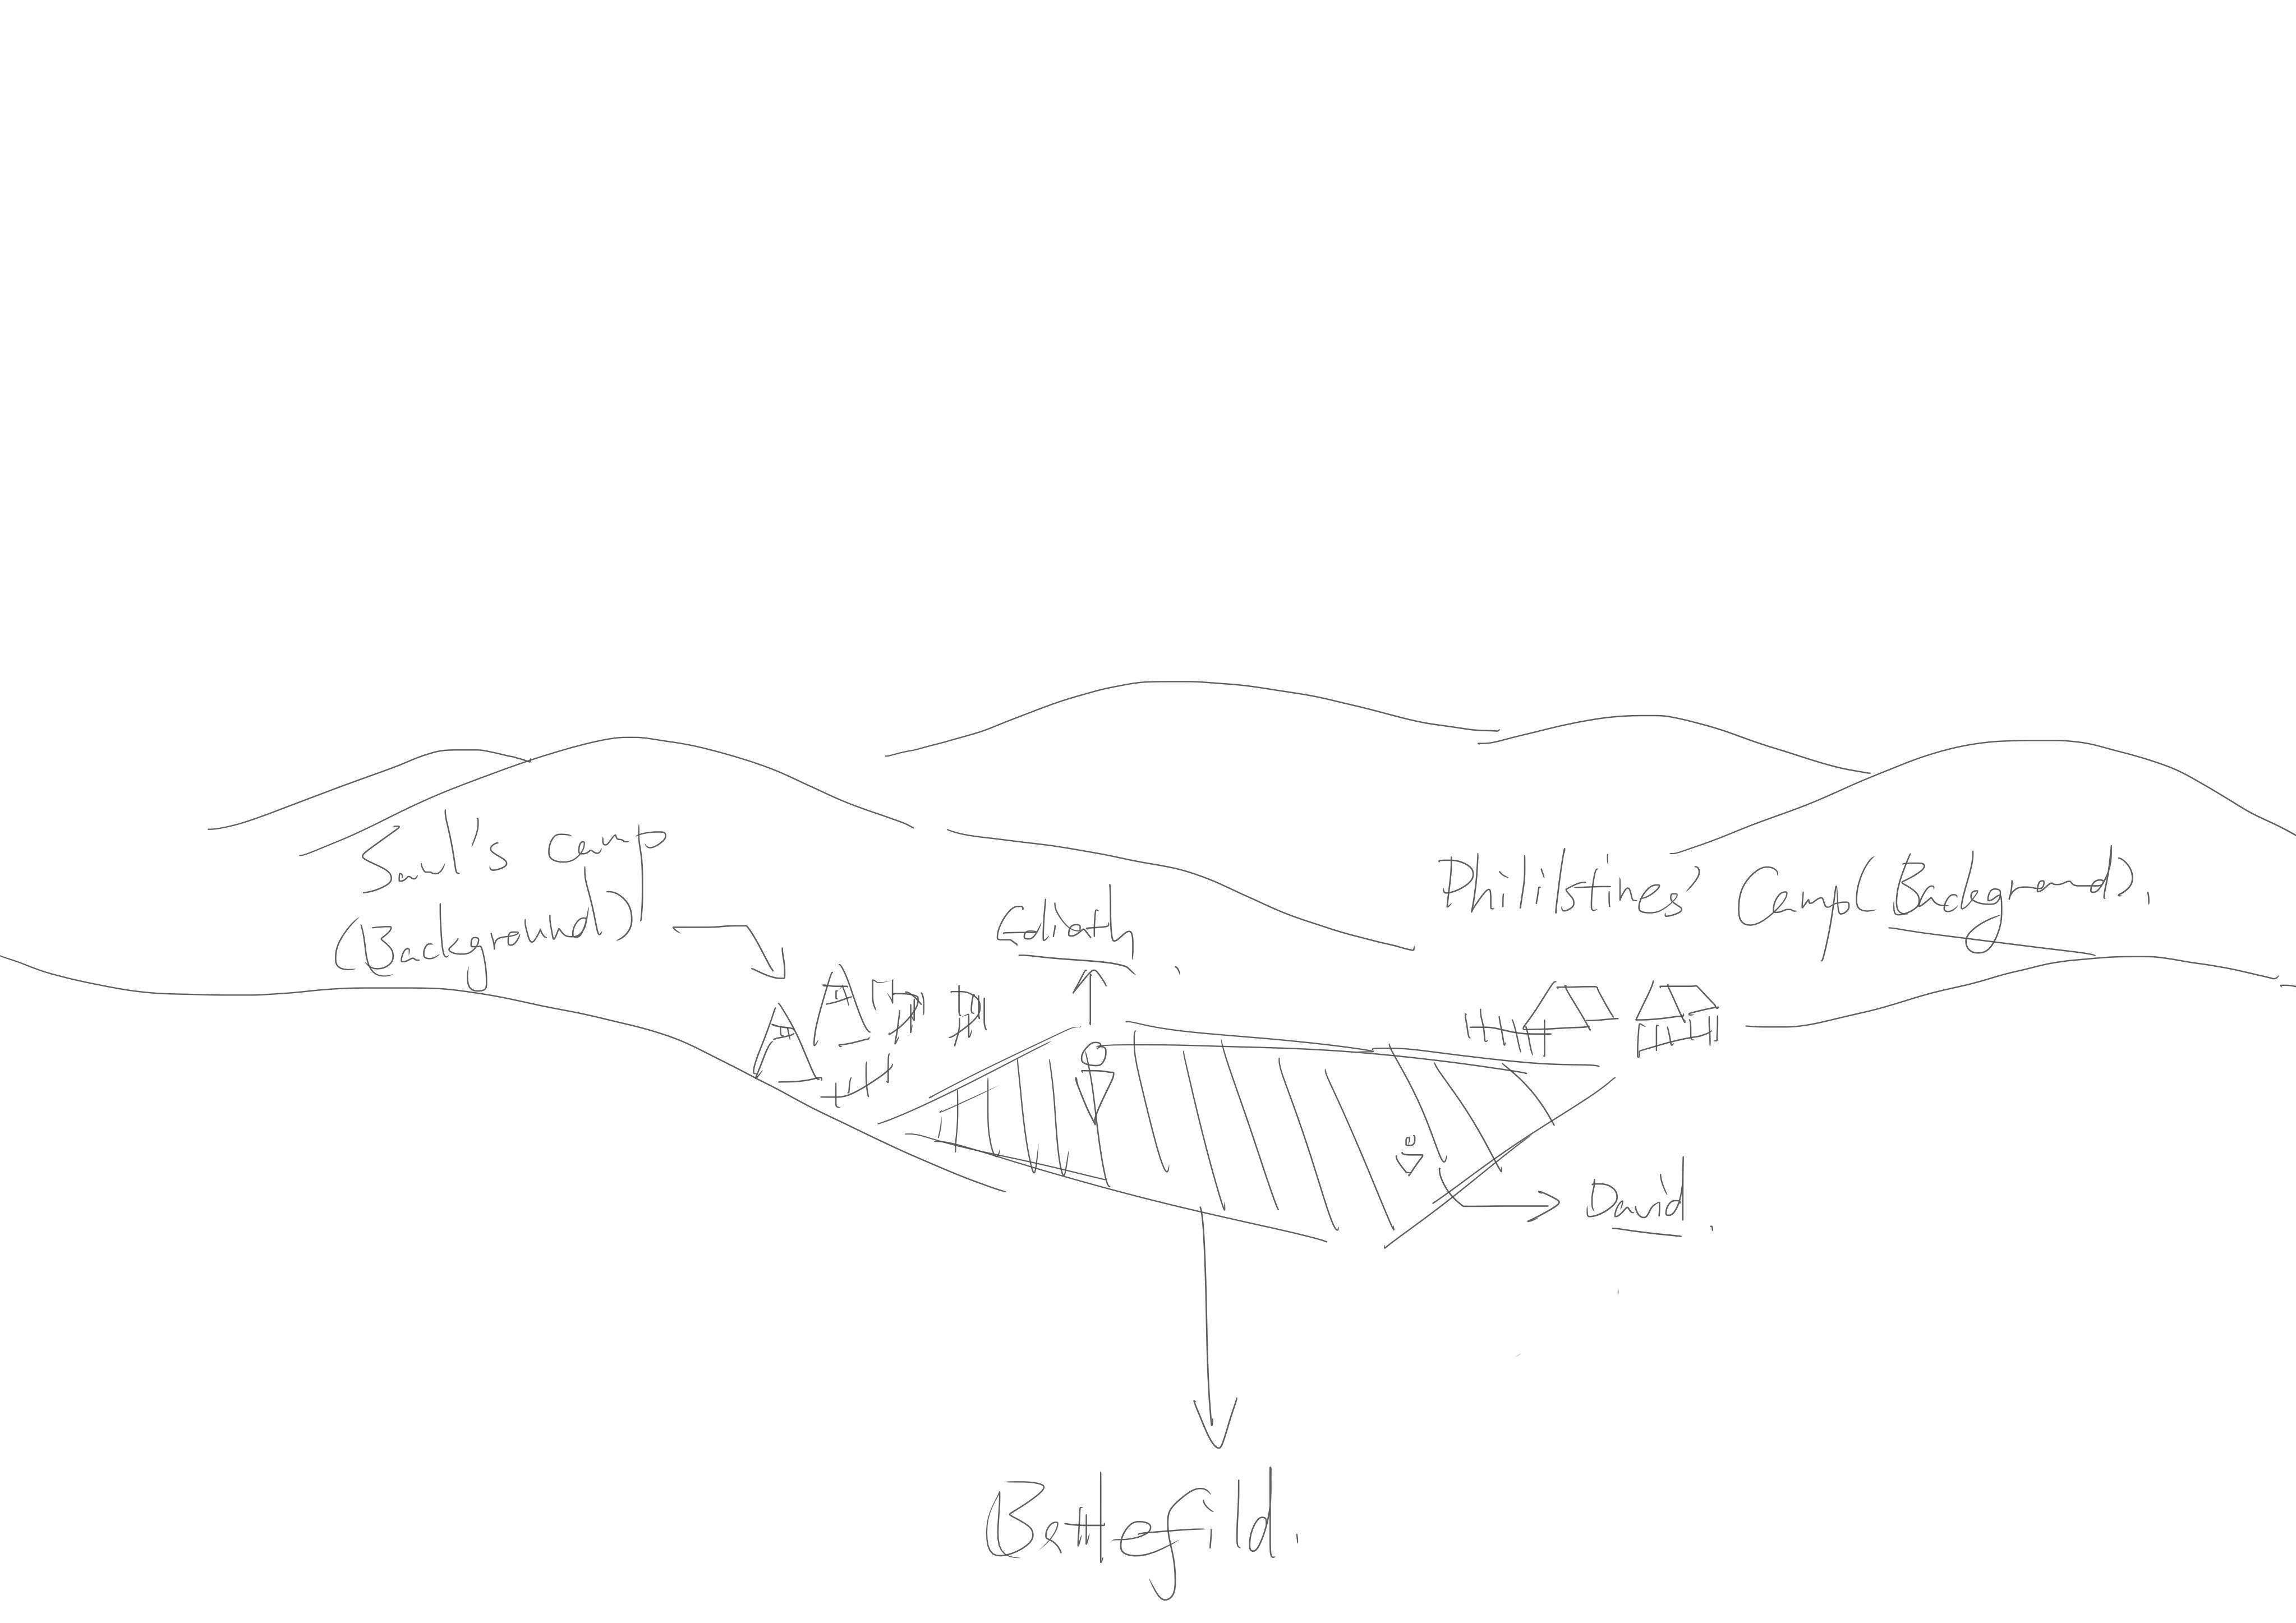 Saul's camp
(Background)
Goliath
Philistines' Camp (Background).
David.
Battlefild.